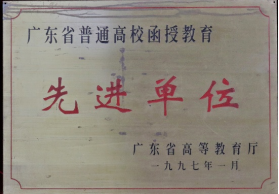 广东省普通高校函授教育
先进单位
广东省高等教育厅
一九九七年一月